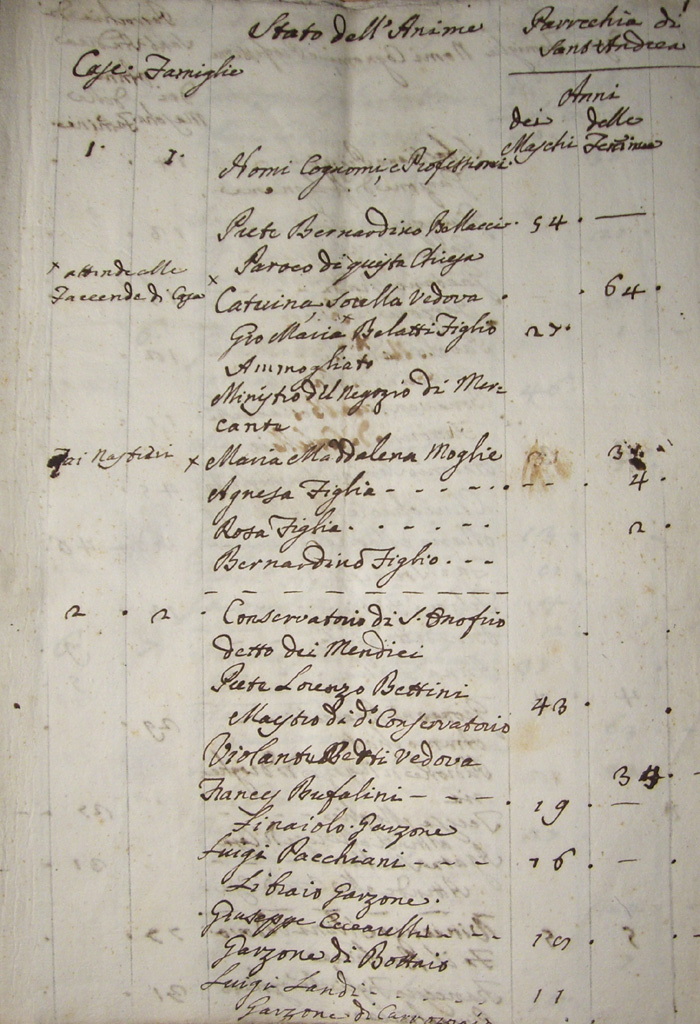 Stato dell'Anime
Parrochia di
Sant'Andrea
Case. Famiglie
Anni
dei delle
Maschi Femine
1. 1.
Nomi Cognomi, e Professioni
Prete Bernardino Bellacci. 54. —
Paroco di questa Chiesa
x attende alle
faccende di Casa
x Caterina sorella Vedova . . 64.
Gio Maria Belatti Figlio 27.
Ammogliato
Ministro del Negozio di Mer=
cante
Fai Nastrini x Maria Maddalena Moglie 3
Agnesa Figlia - - - - - . - - . 4.
Rosa Figlia. . - . - - 2.
Bernardino Figlio. - -
2. 2. Conservatorio di S. Onofrio
detto dei Mendici
Prete Lorenzo Bettini 43
Maestro di d.o Conservatorio
Violante Vedova 34.
Bufalini - - - . 19. —
Garzone
Luigi Pacchiani - - - 16. —
Libraio Garzone.
Giuseppe Ceccarelli - -
Garzone di Bottaio
Luigi Landi. 11
Garzone di